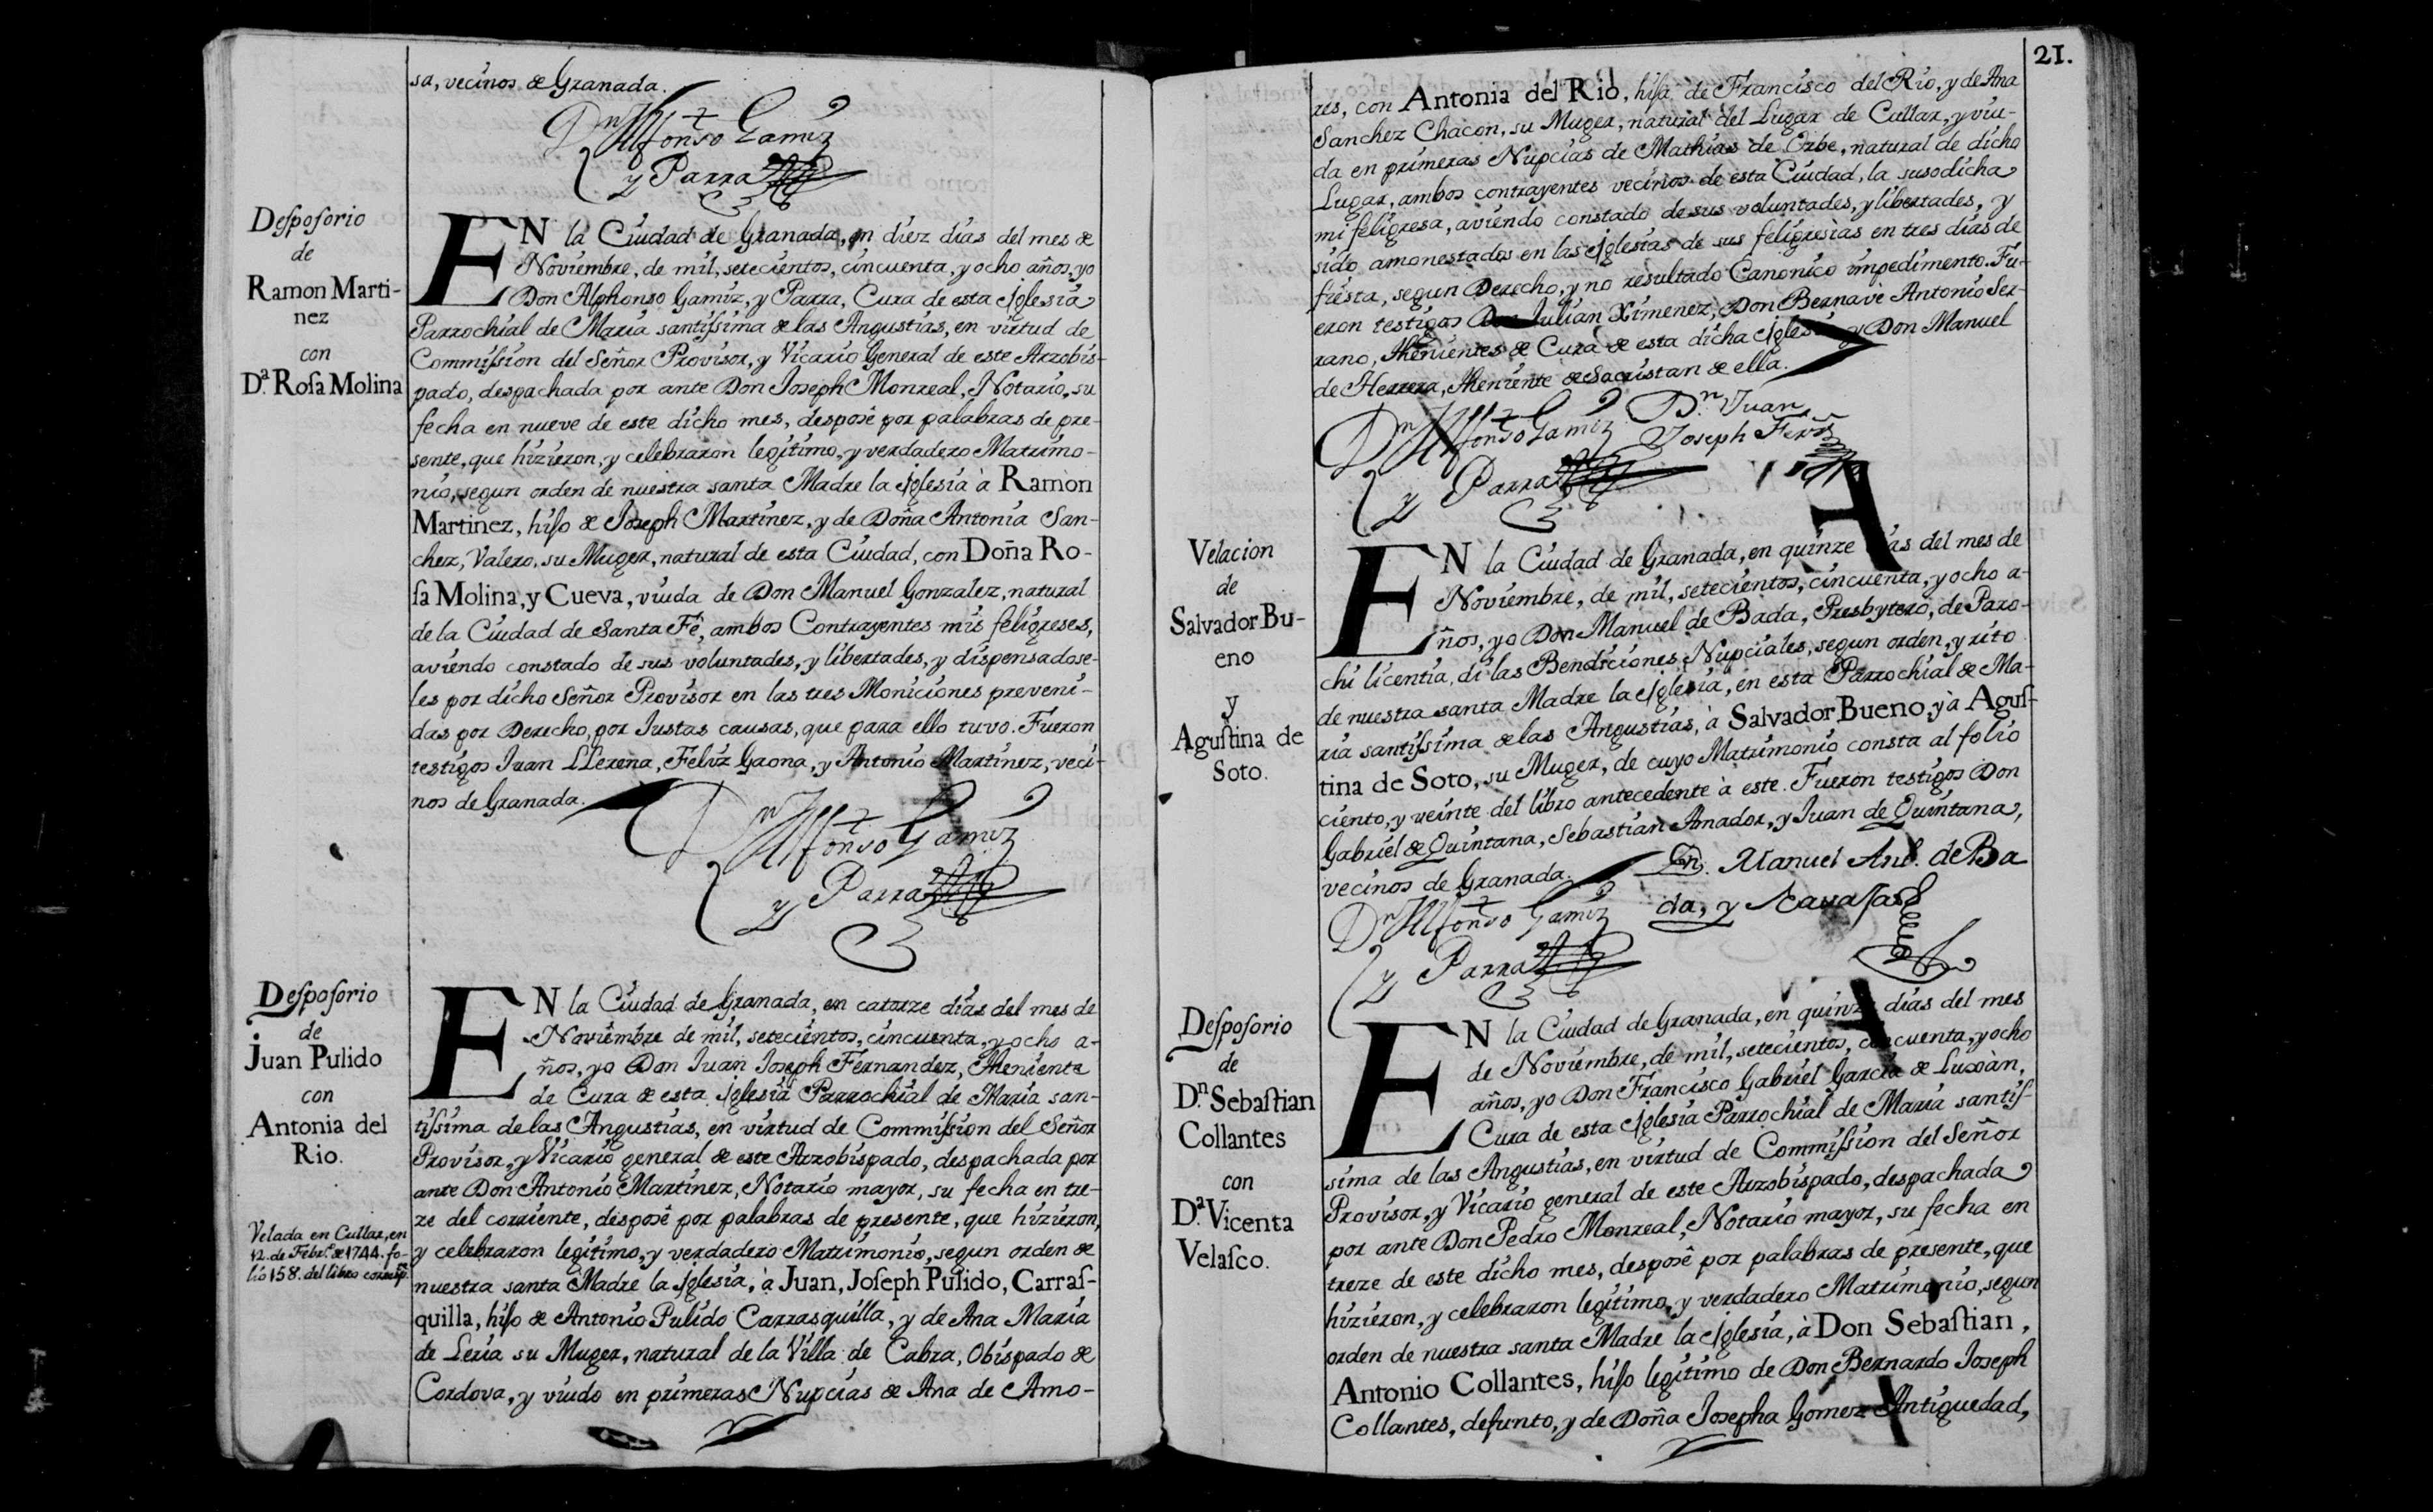 sa, vecinos de Granada.
Dn Alfonso Gamiz
y Parra
Desposorio
de
Ramon Marti-
nez
con
Dª Rosa Molina
EN la Ciudad de Granada, en diez dias del mes de
Noviembre, de mil, setecientos, cincuenta, y ocho años, yo
Don Alphonso Gamiz, y Parra, Cura de esta Iglesia
Parrochial de Maria santissima de las Angustias, en virtud de
Commission del Señor Provisor, y Vicario General de este Arzobis-
pado, despachada por ante Don Joseph Monreal, Notario, su
fecha en nueve de este dicho mes, desposè por palabras de pre-
sente, que hizieron, y celebraron legitimo, y verdadero Matrimo-
nio, segun orden de nuestra santa Madre la Iglesia à Ramon
Martinez, hijo de Joseph Martinez, y de Doña Antonia San-
chez, Valero, su Muger, natural de esta Ciudad, con Doña Ro-
sa Molina, y Cueva, viuda de Don Manuel Gonzalez, natural
de la Ciudad de Santa Fê, ambos Contrayentes mis feligreses,
aviendo constado de sus voluntades, y libertades, y dispensadose-
les por dicho Señor Provisor en las tres Moniciones preveni-
das por Derecho, por Justas causas, que para ello tuvo. Fueron
testigos Juan LLerena, Feliz Gaona, y Antonio Martinez, veci-
nos de Granada.
Dn Alfonso Gamiz
y Parra
Desposorio
de
Juan Pulido
con
Antonia del
Rio.
Velada en Cullar, en
12. de Febrº. de 1744. fo-
lio 158. del libro corresp.
EN la Ciudad de Granada, en catorze dias del mes de
Noviembre de mil, setecientos, cincuenta, y ocho a-
ños, yo Don Juan Joseph Fernandez, Theniente
de Cura de esta Iglesia Parrochial de Maria san-
tissima de las Angustias, en virtud de Commission del Señor
Provisor, y Vicario general de este Arzobispado, despachada por
ante Don Antonio Martinez, Notario mayor, su fecha en tre-
ze del corriente, desposê por palabras de presente, que hizieron,
y celebraron legitimo, y verdadero Matrimonio, segun orden de
nuestra santa Madre la Iglesia, à Juan, Joseph Pulido, Carras-
quilla, hijo de Antonio Pulido Carrasquilla, y de Ana Maria
de Leria su Muger, natural de la Villa de Cabra, Obispado de
Cordova, y viudo en primeras Nupcias de Ana de Amo-
21.
res, con Antonia del Rio, hija de Francisco del Rio, y de Ana
Sanchez Chacon, su Muger, natural del Lugar de Cullar, y viu-
da en primeras Nupcias de Mathias de Orbe, natural de dicho
Lugar, ambos contrayentes vecinos de esta Ciudad, la susodicha
mi feligresa, aviendo constado de sus voluntades, y libertades, y
sido amonestados en las Iglesias de sus feligresias en tres dias de
fiesta, segun Derecho, y no resultado Canonico impedimento. Fu-
eron testigos Don Julian Ximenez, Don Bernavè Antonio Ser-
rano, Thenientes de Cura de esta dicha Iglesia, y Don Manuel
de Herrera, Theniente de Sacristan de ella.
Dn Alfonso Gamiz
y Parra
Dn. Juan
Joseph Ferrz
Velacion
de
Salvador Bu-
eno
y
Agustina de
Soto.
EN la Ciudad de Granada, en quinze dias del mes de
Noviembre, de mil, setecientos, cincuenta, y ocho a-
ños, yo Don Manuel de Bada, Presbytero, de Paro-
chi licentia, di las Bendiciones Nupciales, segun orden, y rito
de nuestra santa Madre la Iglesia, en esta Parrochial de Ma-
ria santissima de las Angustias, à Salvador Bueno, y à Agus-
tina de Soto, su Muger, de cuyo Matrimonio consta al folio
ciento, y veinte del libro antecedente à este. Fueron testigos Don
Gabriel de Quintana, Sebastian Amador, y Juan de Quintana,
vecinos de Granada.
Dn. Manuel Antº. de Ba
da, y Navajas
Dn Alfonso Gamiz
y Parra
Desposorio
de
Dn. Sebastian
Collantes
con
Dª. Vicenta
Velasco.
EN la Ciudad de Granada, en quinze dias del mes
de Noviembre, de mil, setecientos, cincuenta, y ocho
años, yo Don Francisco Gabriel Garcia de Luxàn,
Cura de esta Iglesia Parrochial de Maria santis-
sima de las Angustias, en virtud de Commission del Señor
Provisor, y Vicario general de este Arzobispado, despachada
por ante Don Pedro Monreal, Notario mayor, su fecha en
treze de este dicho mes, desposê por palabras de presente, que
hizieron, y celebraron legitimo, y verdadero Matrimonio, segun
orden de nuestra santa Madre la Iglesia, à Don Sebastian,
Antonio Collantes, hijo legitimo de Don Bernardo Joseph
Collantes, defunto, y de Doña Josepha Gomez Antiguedad,